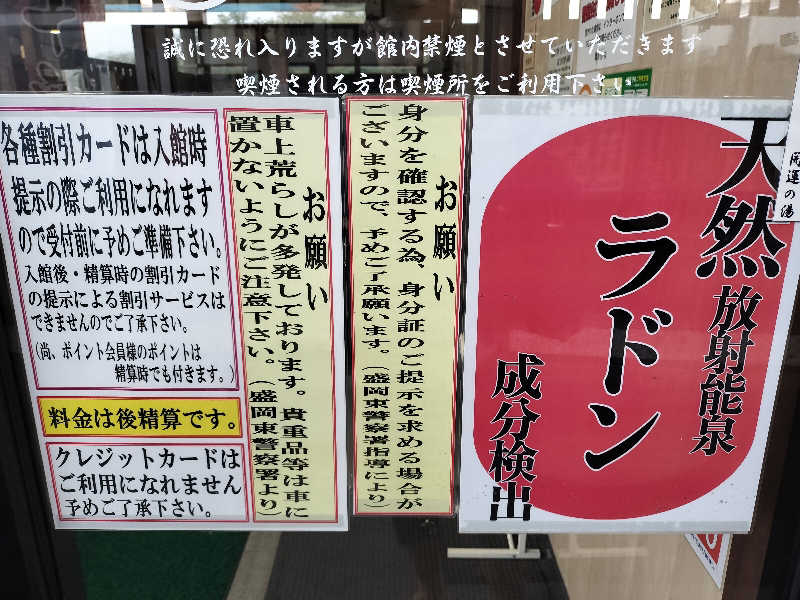 誠に恐れ入りますが館内禁煙とさせていただきます
喫煙される方は喫煙所をご利用下さい
各種割引カードは入館時
提示の際ご利用になれます
ので受付前に予めご準備下さい。
入館後・精算時の割引カード
の提示による割引サービスは
できませんのでご了承下さい。
(尚、ポイント会員様のポイントは
精算時でも付きます。)
料金は後精算です。
クレジットカードは
ご利用になれません
予めご了承下さい。
お願い
車上荒らしが多発しております。貴重品等は車に
置かないようにご注意下さい。(盛岡東警察署より)
お願い
身分を確認する為、身分証のご提示を求める場合が
ございますので、予めご了承願います。(盛岡東警察署指導により)
天然放射能泉
ラドン
成分検出
開運の湯